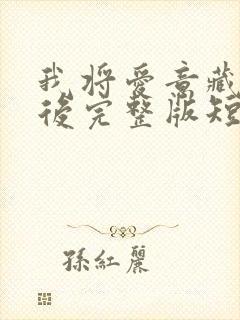 我将愛意藏
後完整版短
孫紅麗